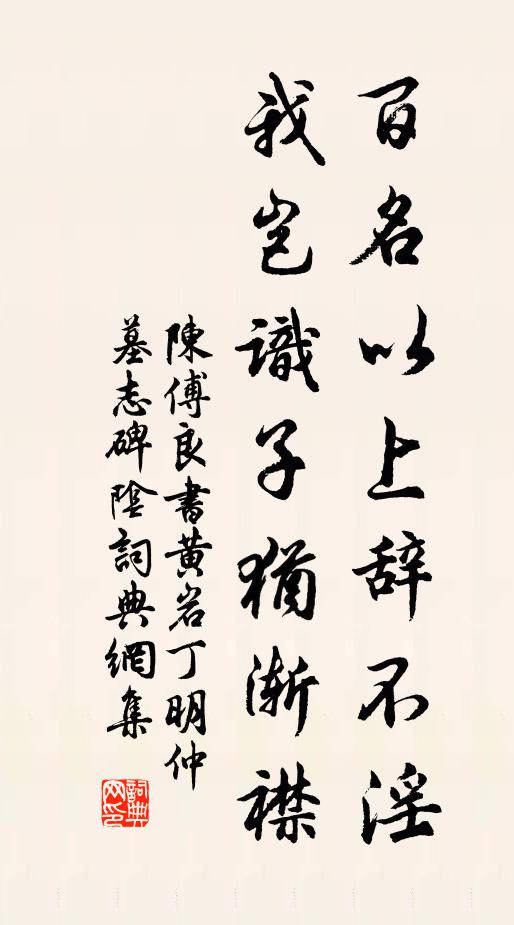 百名以上辞不淫
我岂識子猶渐襟
陳傅良書黄岩丁明仲
墓志碑陰詞典網集
詞典网印